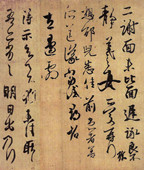 二謝面未比面遲詠良
不靜羲之女愛再拜
想邰兒悉佳前患者善
所送議當試尋省
左邊劇
得示知足下猶未佳耿
耿吾亦劣劣明日出乃行